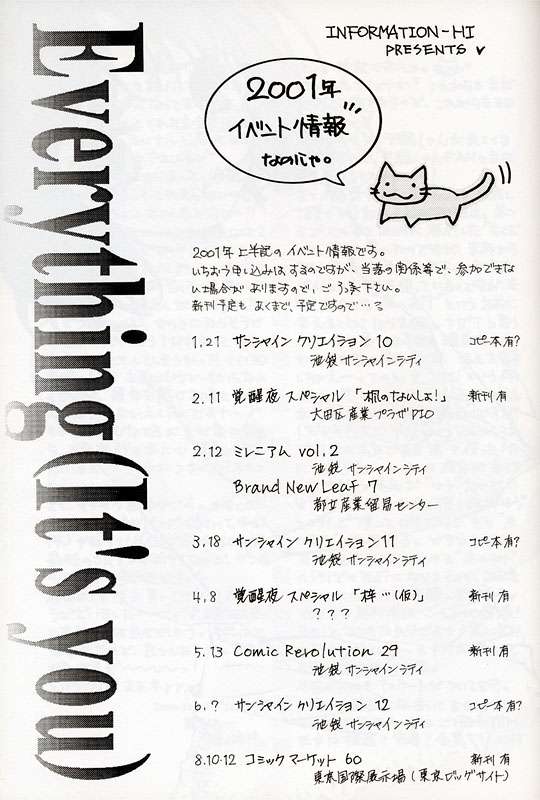 Everything (It's you)
INFORMATION-HI
PRESENTS ♥
2001年
イベント情報
なのじゃ。
2001年 上半記の イベント情報です。
いちおう申し込みは するのですが、当落の関係等で、参加できな
い場合が ありますので、ご 注意下さい。
新刊予定も あくまで、予定ですので…
1.21 サンシャイン クリエイション 10 コピー本有?
池袋 サンシャインシティ
2.11 覚醒夜 スペシャル 「楓のないしょ!」 新刊 有
大田区産業プラザPIO
2.12 ミレニアム vol.2
池袋 サンシャインシティ
Brand New Leaf 7
都立産業貿易センター
3.18 サンシャイン クリエイション11 コピー本有?
池袋 サンシャインシティ
4.8 覚醒夜 スペシャル 「梓…(仮)」 新刊 有
???
5.13 Comic Revolution 29 新刊 有
池袋 サンシャインシティ
6.? サンシャイン クリエイション 12 コピー本有?
池袋 サンシャインシティ
8.10.12 コミック マーケット 60 新刊 有
東京国際展示場 (東京ビッグサイト)